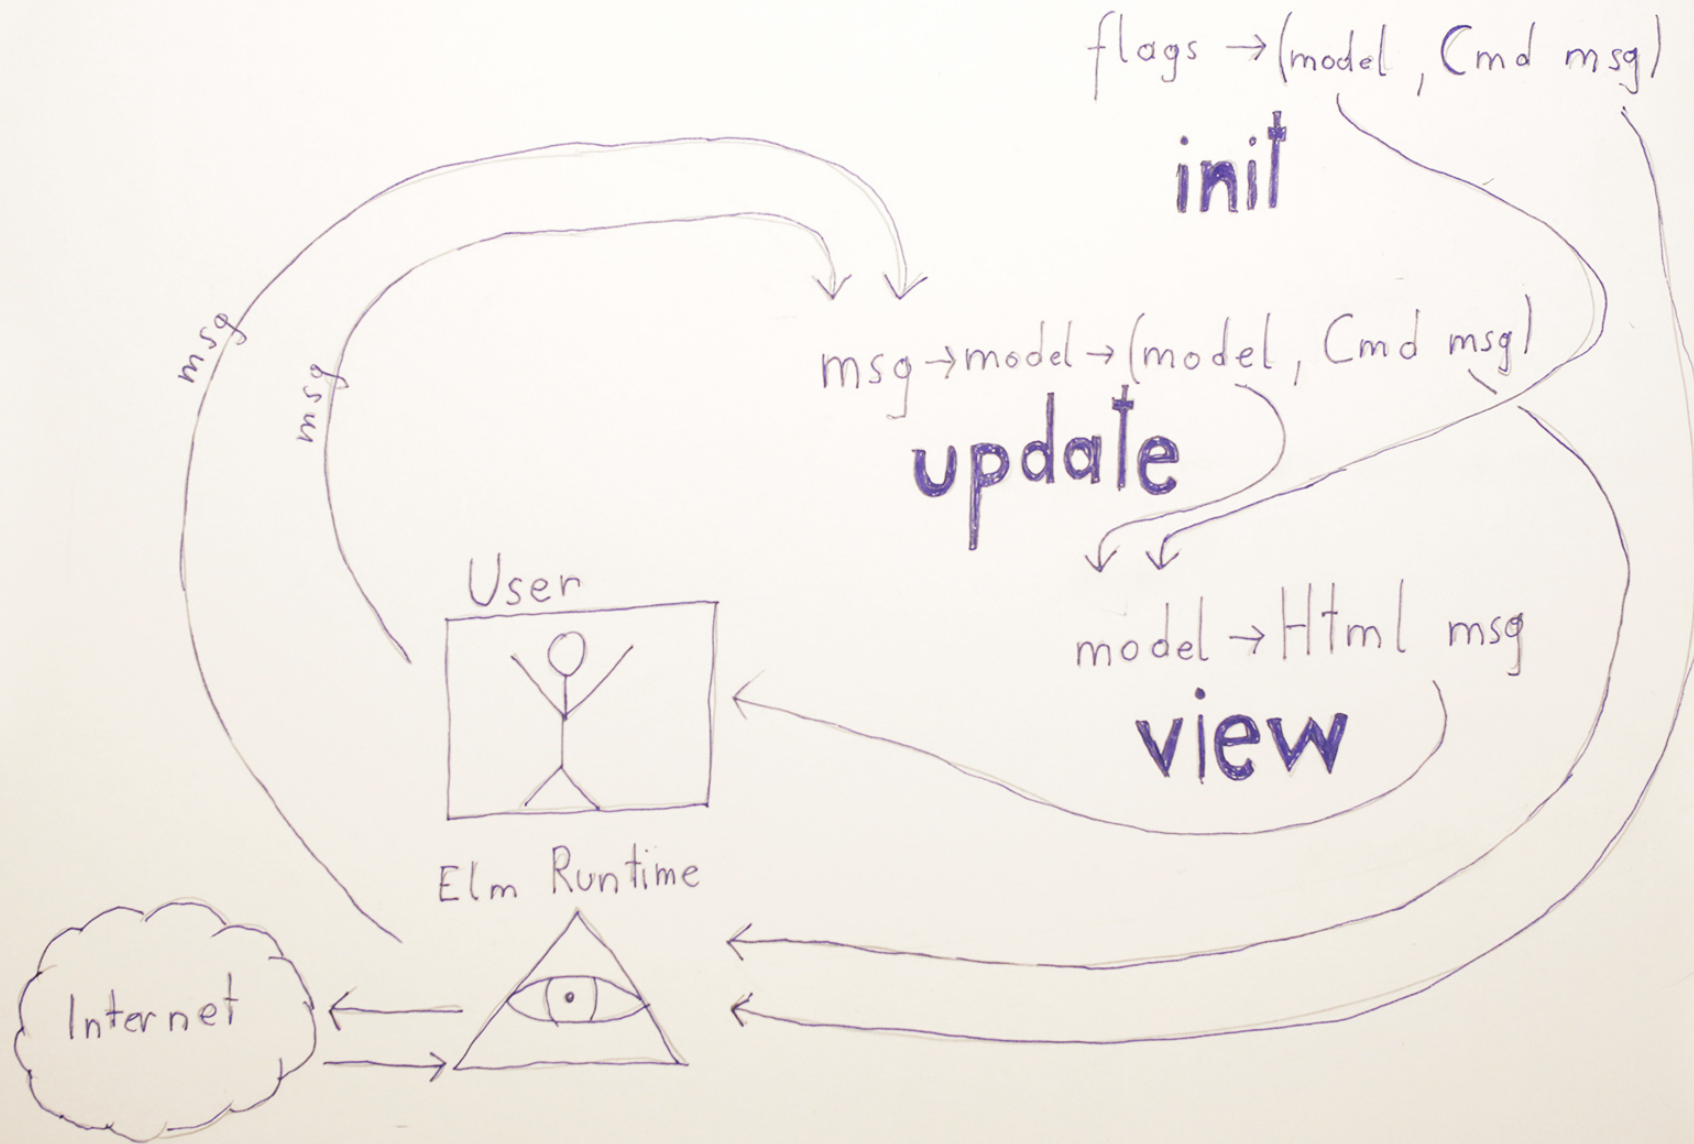 flags → (model, Cmd msg)
init
msg
msg
msg → model → (model, Cmd msg)
update
User
model → Html msg
view
Elm Runtime
Internet